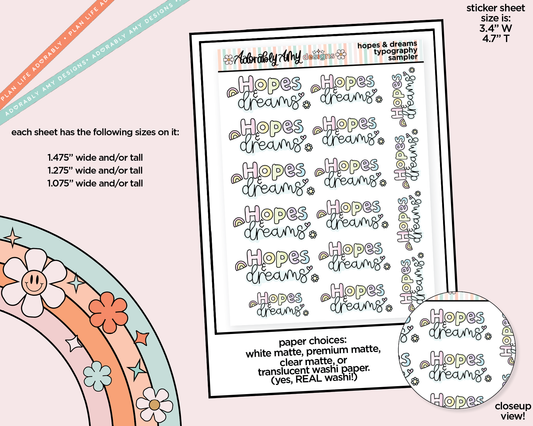 PLAN LIFE ADORABLY • ADORABLY AMY DESIGNS • PLAN LIFE ADORABLY •
ADORABLY AMY DESIGNS • ADORABLY AMY DESIGNS
sticker sheet
size is:
3.4" W
4.7" T
each sheet has the following sizes on it:
1.475" wide and/or tall
1.275" wide and/or tall
1.075" wide and/or tall
Adorably Amy designs
hopes & dreams
typography
sampler
Hopes & dreams Hopes & dreams Hopes & dreams
Hopes & dreams Hopes & dreams Hopes & dreams
Hopes & dreams Hopes & dreams
Hopes & dreams Hopes & dreams Hopes & dreams
Hopes & dreams Hopes & dreams Hopes & dreams
Hopes & dreams Hopes & dreams
paper choices:
white matte, premium matte,
clear matte, or
translucent washi paper.
(yes, REAL washi!)
Hopes
dreams
Hopes
dreams
closeup
view!